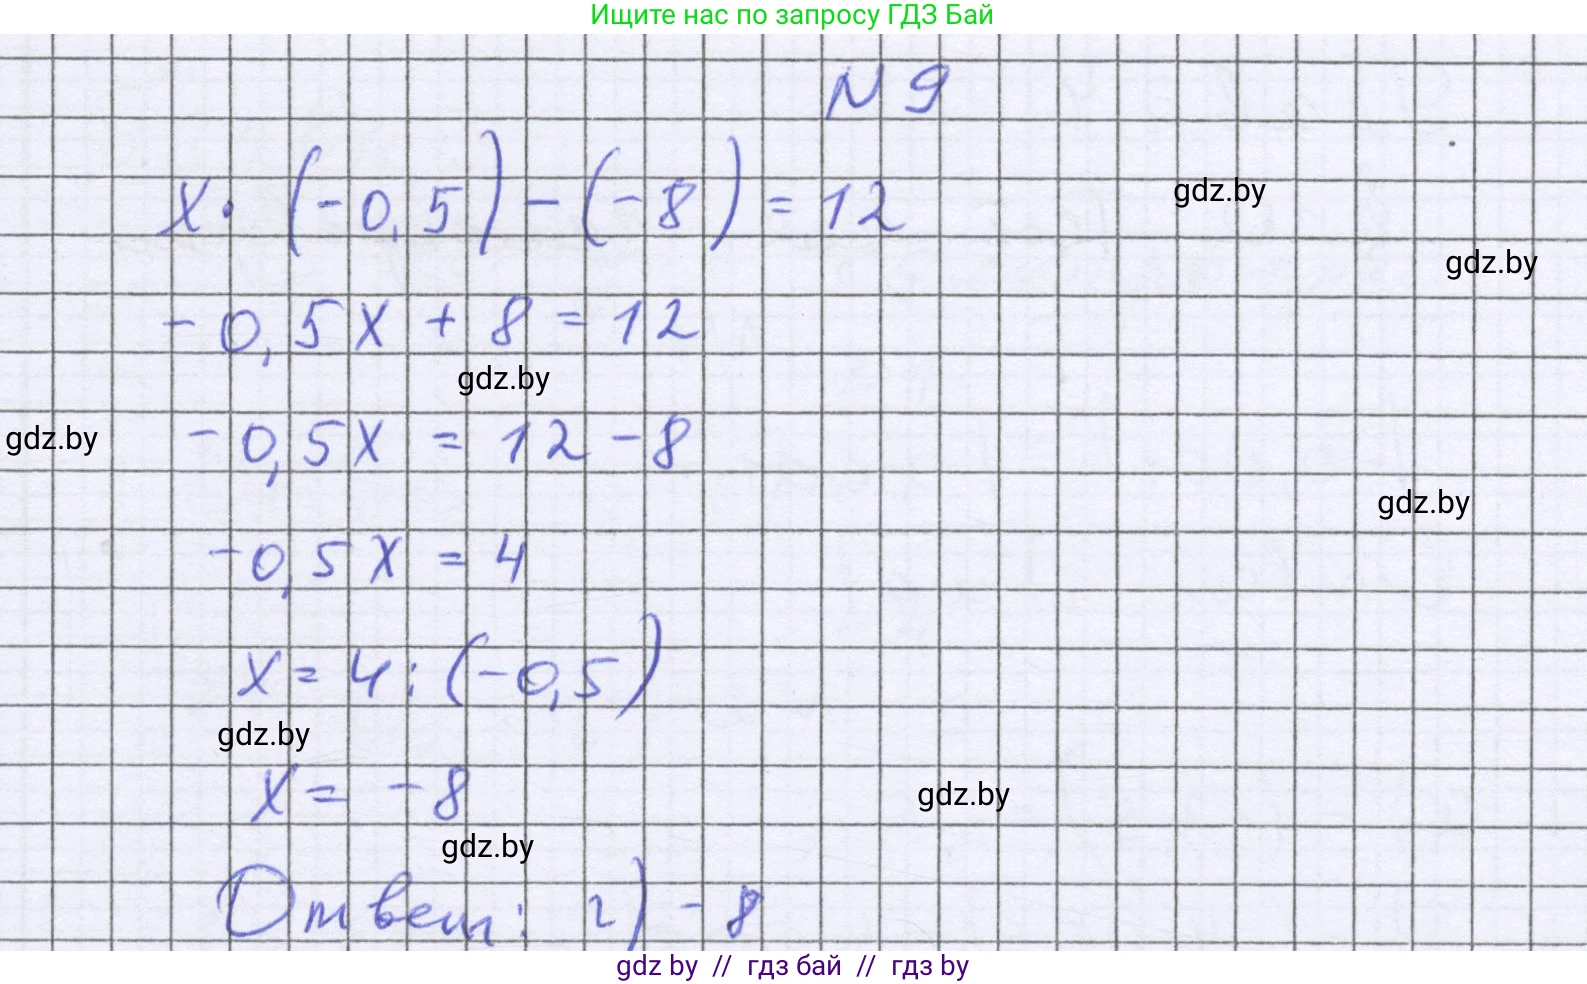 Ищите нас по запросу ГДЗ Бай
N 9
x · (-0,5) - (-8) = 12
gdz.by
gdz.by
-0,5x + 8 = 12
gdz.by
gdz.by
-0,5x = 12 - 8
gdz.by
-0,5x = 4
x = 4 : (-0,5)
gdz.by
x = -8
gdz.by
gdz.by
Ответ: г) -8
gdz by // гдз бай // гдз by